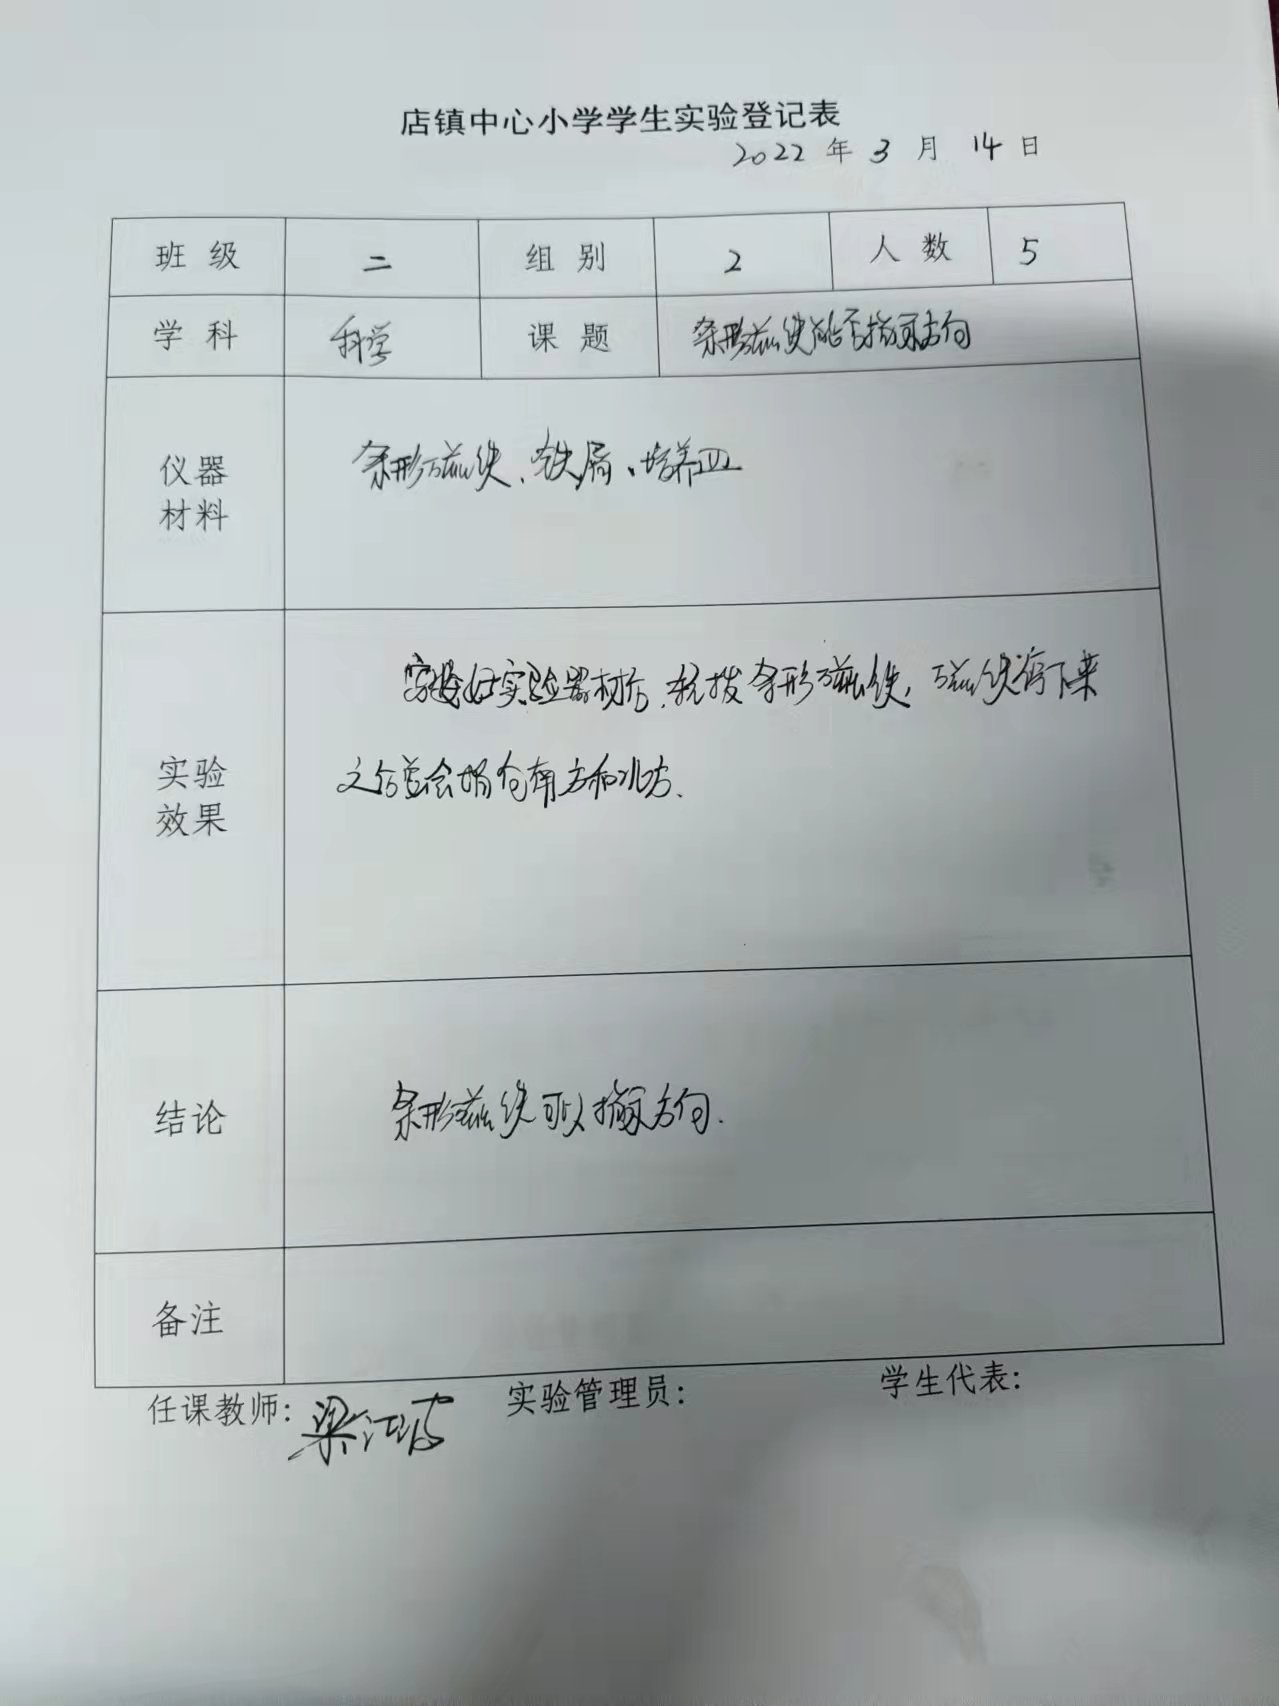 店镇中心小学学生实验登记表
2022 年 3 月 14 日
班级 二 组别 2 人数 5
学科 科学 课题 条形磁铁能否指示方向
仪器材料 条形磁铁、铁屑、培养皿
实验效果 好实验器材后,轻拨条形磁铁,磁铁停下来
之后总会指向南方和北方、
结论 条形磁铁可以指示方向.
备注
任课教师: 梁江波 实验管理员: 学生代表: